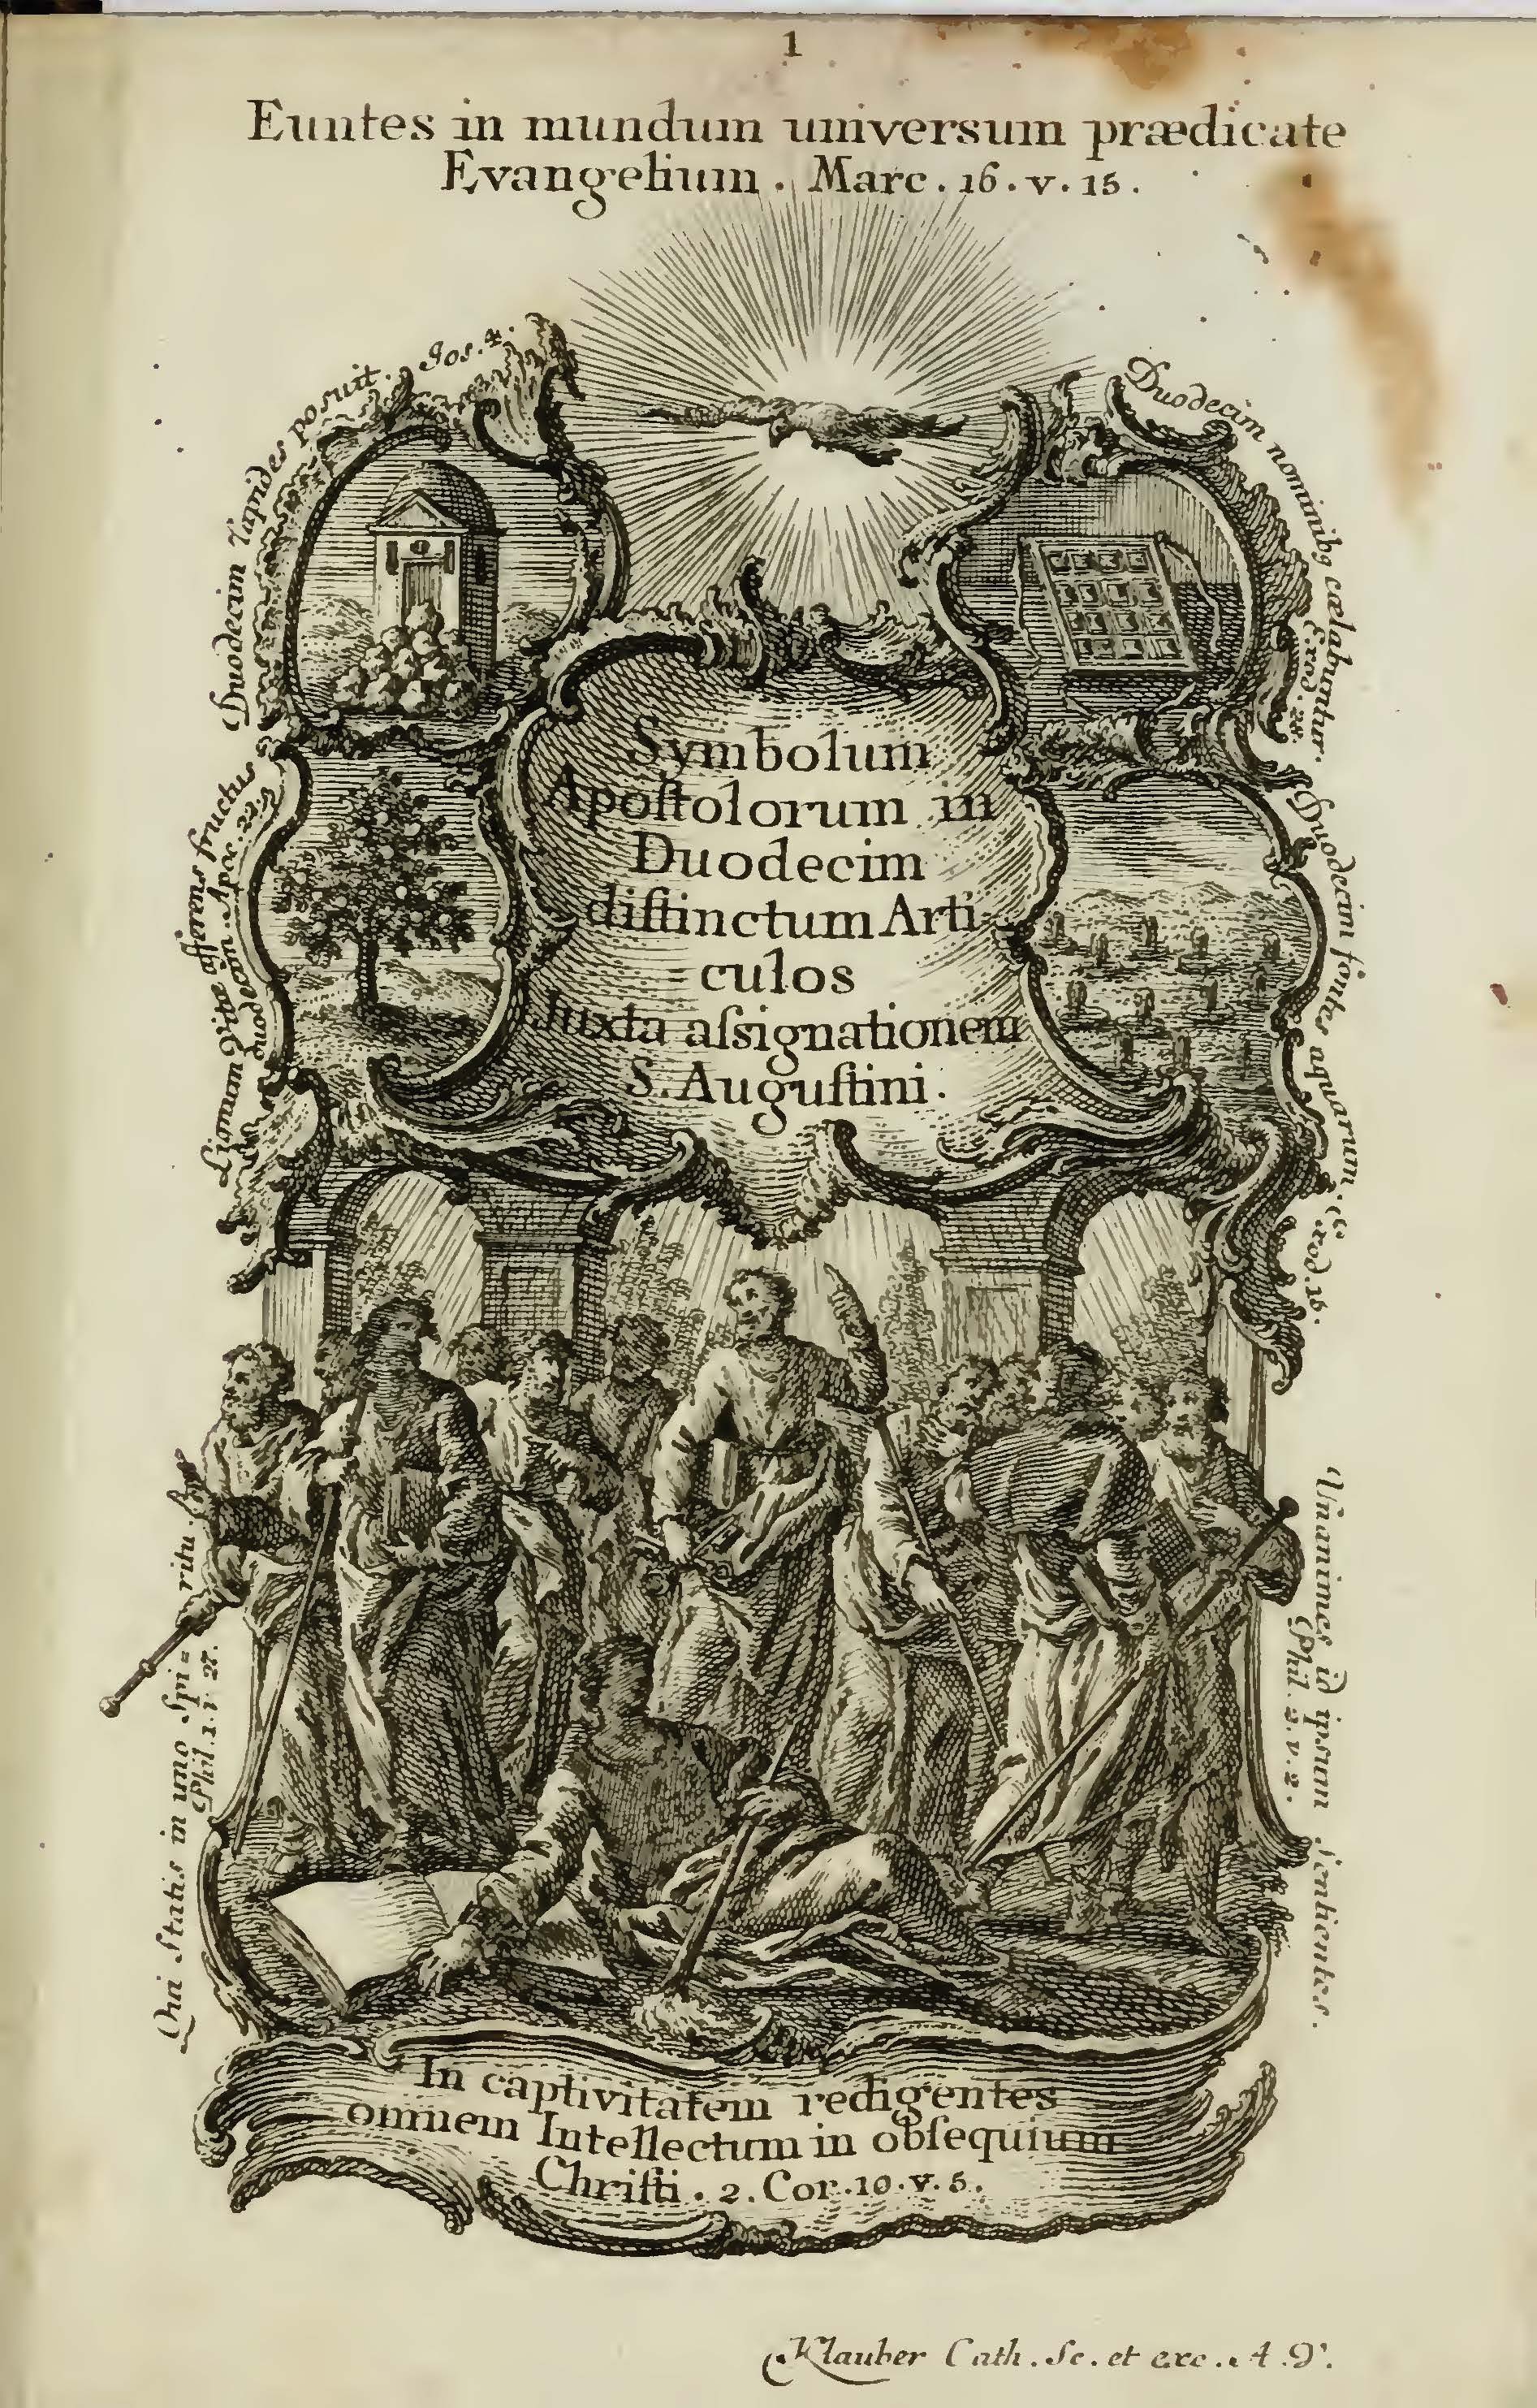 1
Euntes in mundum universum prædicate
Evangelium. Marc. 16. v. 15.
Duodecim Lapides posuit. Jos. 4.
Duodecim nominibq cælabuntur.
Exod. 28.
Lignum Vitæ afferens fructus
duodecim Apoc. 22.
Duodecim fontes aquarum. Exod. 16.
Symbolum
Apoſtolorum in
Duodecim
diſtinctum Arti
culos
Juxta aſsignationem
S. Auguſtini.
Qui Statis in uno Spi=ritu.
Phil. 1. v. 27.
Unanimes id ipsum Sentientes.
Phil. 2. v. 2.
In captivitatem redigentes
omnem Intellectum in obſequium
Chriſti. 2. Cor. 10. v. 5.
Klauber Cath. Sc. et exc. A. V.